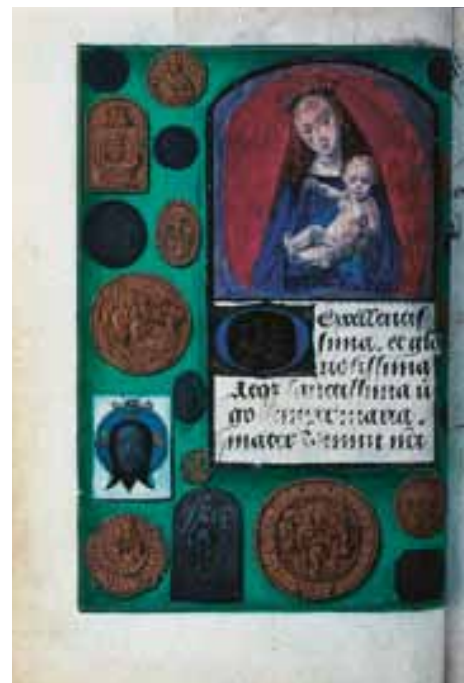 excellentis
sima. et glo
riosissima
atqz sanctissima ui
go semper maria.
mater domini nr̄i